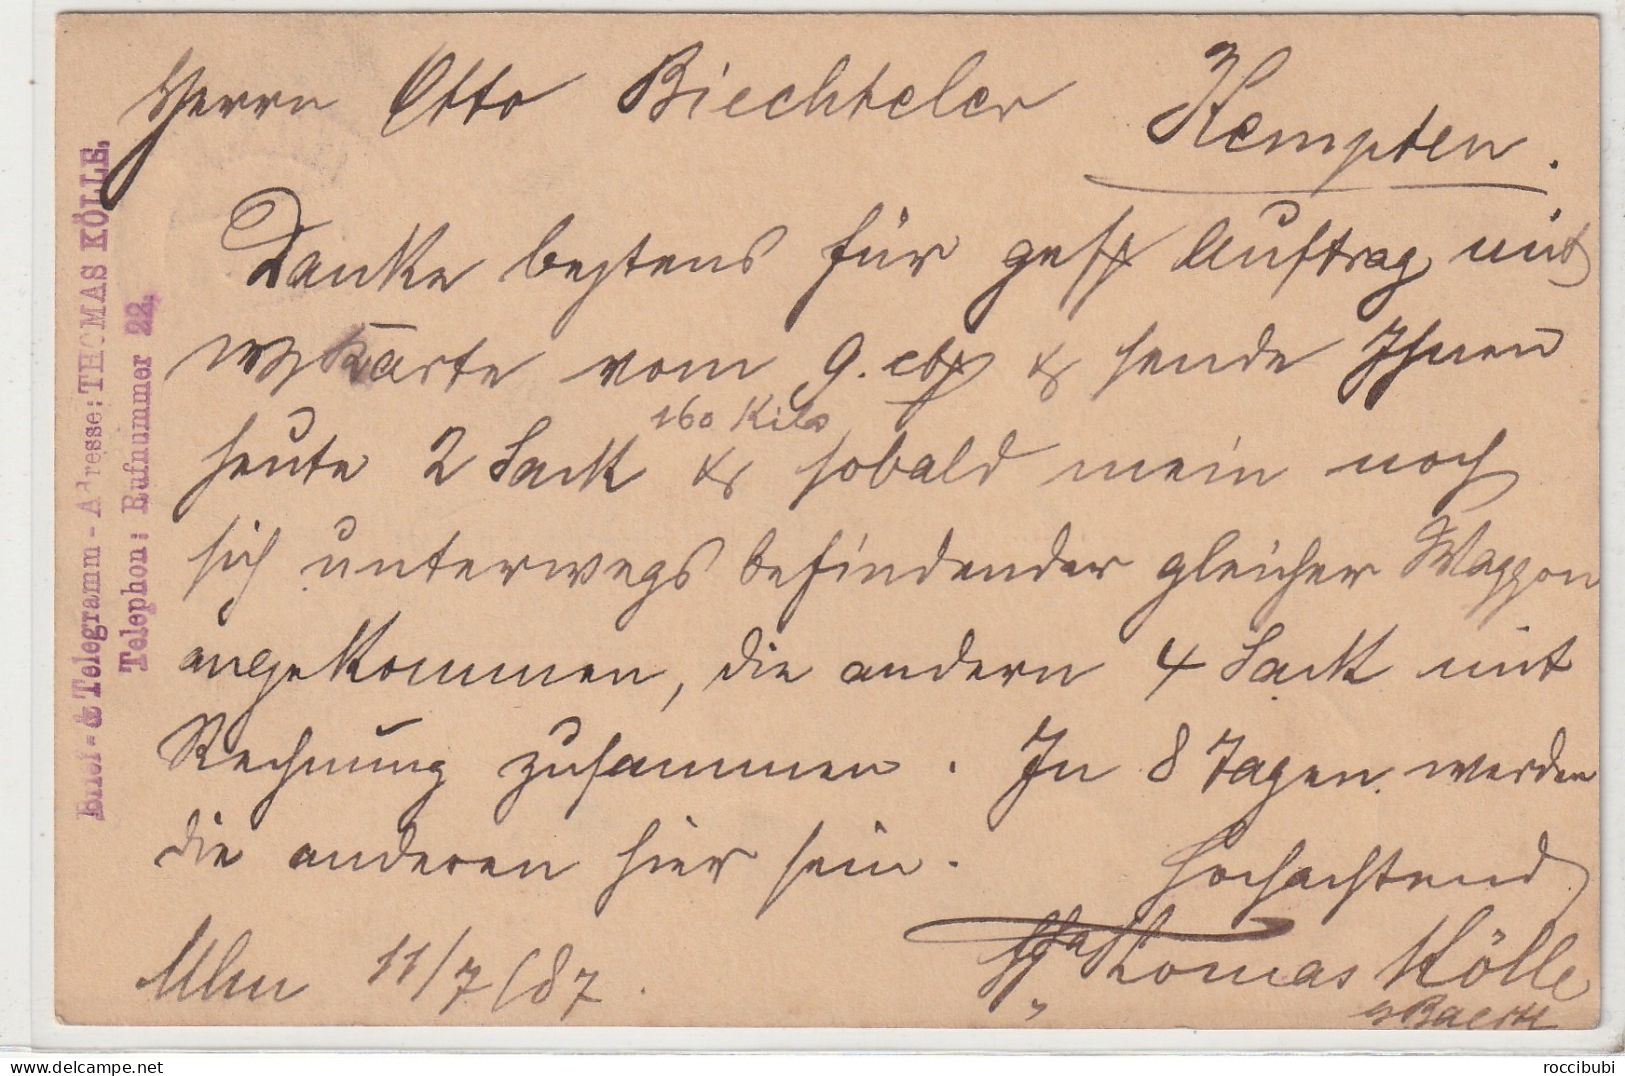 Brief- & Telegramm-Adresse: THOMAS KÖLLE.
Telephon: Rufnummer 22.
Herrn Otto Biechteler Kempten.
Danke bestens für gefl Auftrag mit
Karte vom 9. & sende Ihnen
160 Kilo
heute 2 Sack & sobald mein noch
sich unterwegs befindender gleicher Waggon
angekommen, die andern 4 Sack mit
Rechnung zusammen. In 8 Tagen werden
die anderen hier sein.
Hochachtend
Thomas Kölle
Ulm 11/7/87.
roccibubi